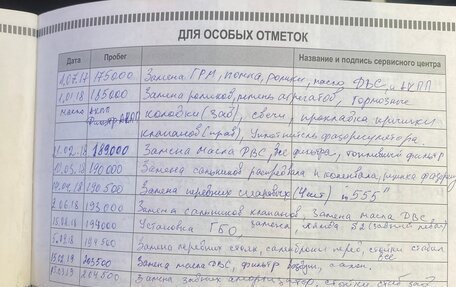 ДЛЯ ОСОБЫХ ОТМЕТОК
Дата Пробег Название и подпись сервисного центра
1.07.17 175000 Замена ГРМ, помпа, ролики, масло ДВС, и АКПП
1.01.18 185000 Замена роликов, ремень агрегатов, тормозные
масло АКПП колодки (зад), свечи, прокладка крышки
фильтр АКПП клапанов (прав), уплотнитель фазорегулятора
21.02.18 189000 Замена масла ДВС, все фильтра, топливный фильтр
10.03.18 190000 Замена сальников распредвала и коленвала,
190500 Замена передних шаровых (4шт) "555"
2.06.18 193000 Замена сальников клапанов, Замена масла ДВС,
15.08.18 194000 Установка ГБО, замена
194500 Замена передних стоек, сайлентблоки перед, стойки стабил
все
15.02.19 203500 Замена масла ДВС, фильтр воздуш, салон.
204500 Замена задних амортизатор, стойки стаб зад